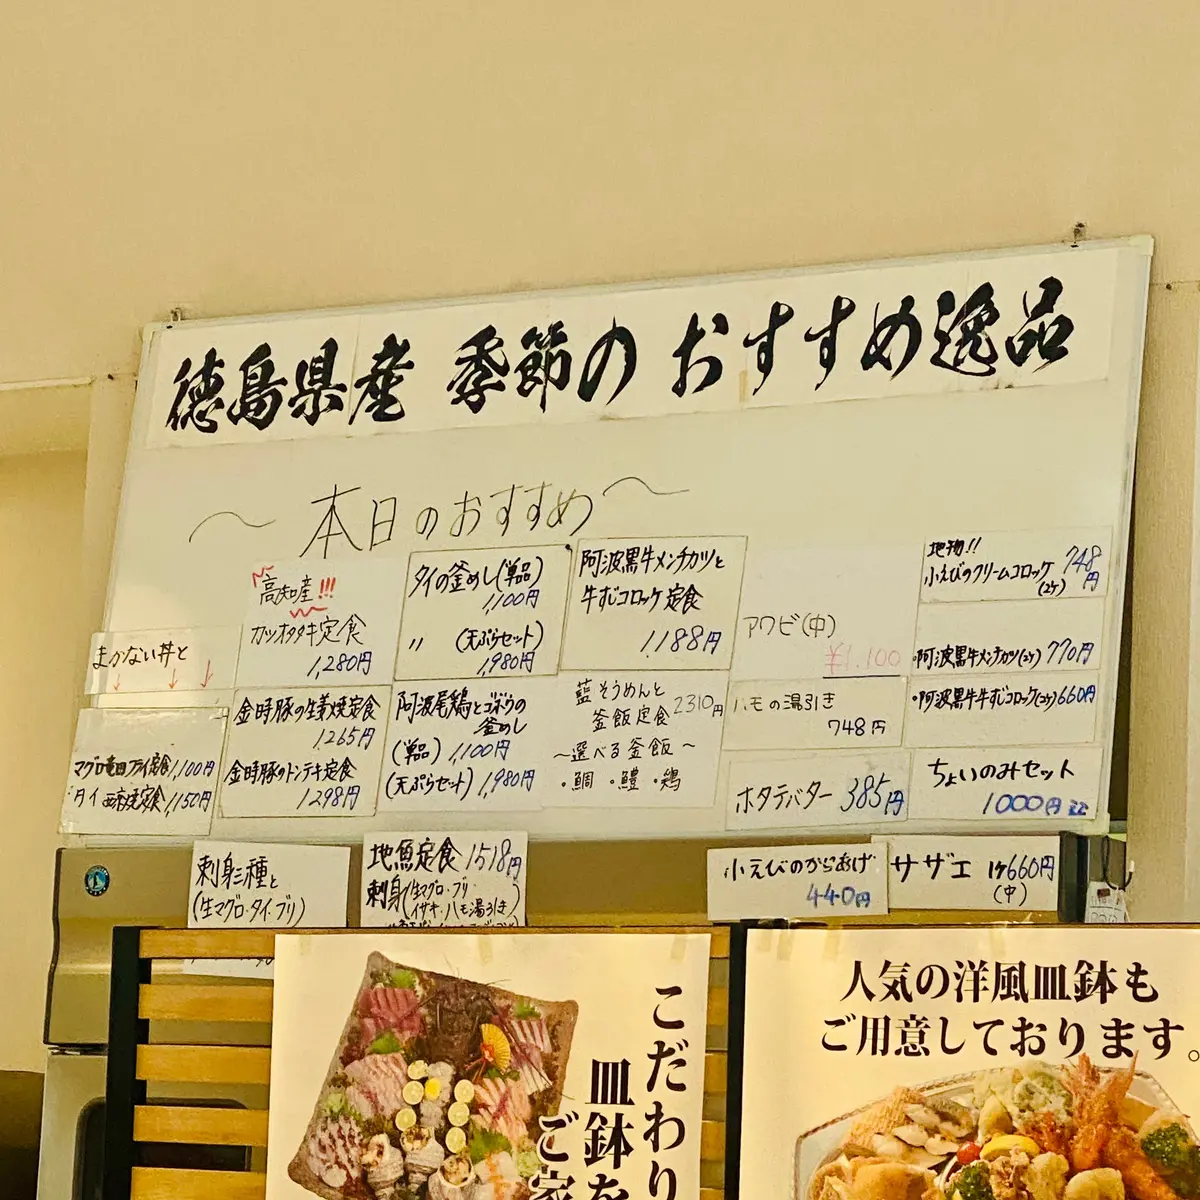 徳島県産 季節の おすすめ逸品
〜本日のおすすめ〜
まかない丼と
マグロ竜田フライ定食 1,100円
タイ西京焼定食 1,150円
高知産!!!
カツオタタキ定食
1,280円
金時豚の生姜焼定食
1,265円
金時豚のトンテキ定食
1298円
タイの釜めし(単品)
1,100円
〃 (天ぷらセット)
1,980円
阿波尾鶏とゴボウの
釜めし
(単品) 1,100円
(天ぷらセット) 1,980円
阿波黒牛メンチカツと
牛すじコロッケ定食
1,188円
藍そうめんと
釜飯定食 2310円
〜選べる釜飯〜
・鯛 ・鱧 ・鶏
アワビ(中)
¥1,100
ハモの湯引き
748円
ホタテバター 385円
地物!!
小えびのクリームコロッケ 748円
(2ケ)
・阿波黒牛メンチカツ(2ケ) 770円
・阿波黒牛牛すじコロッケ(2ケ) 660円
ちょいのみセット
1000円
刺身三種と
(生マグロ・タイ・ブリ)
地魚定食 1518円
刺身(生マグロ・ブリ
イサキ・ハモ湯引き)
小えびのからあげ
440円
サザエ 1ケ660円
(中)
こだわり
皿鉢を
ご家
人気の洋風皿鉢も
ご用意しております。